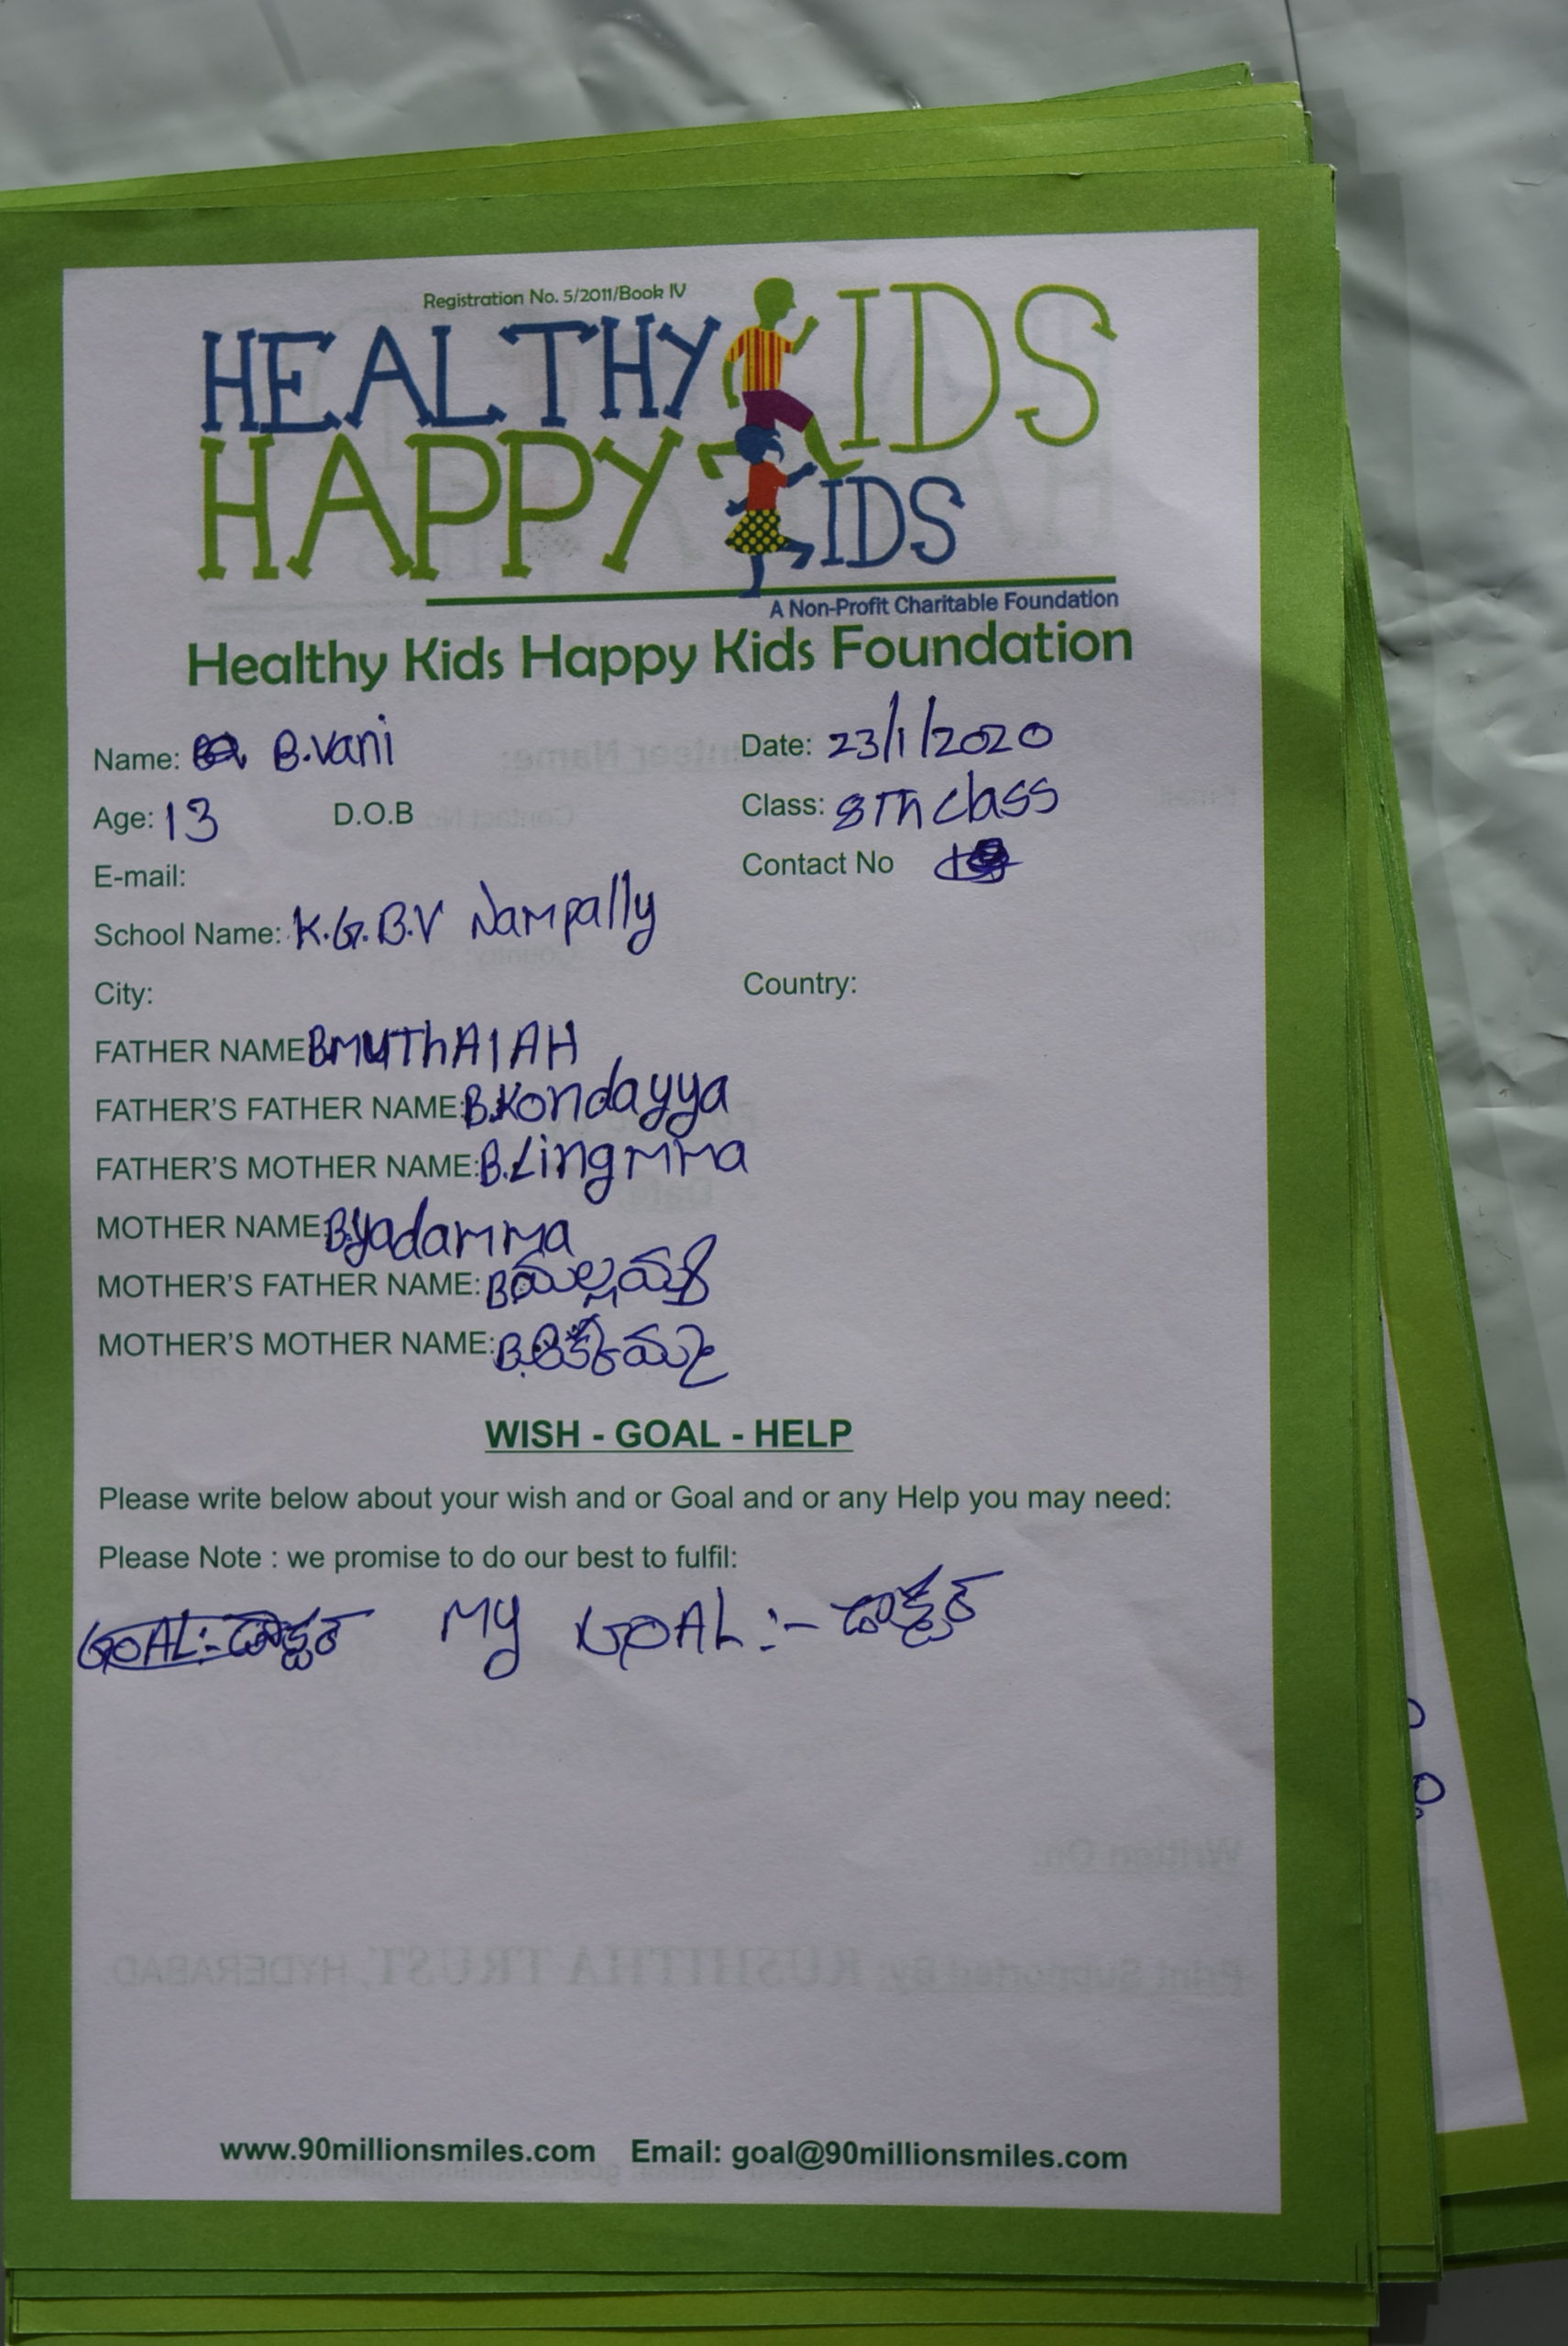 Registration No. 5/2011/Book IV
HEALTHY KIDS
HAPPY KIDS
A Non-Profit Charitable Foundation
Healthy Kids Happy Kids Foundation
Name: B.vani Date: 23/1/2020
Age: 13 D.O.B Class: 8Th class
E-mail: Contact No
School Name: K.G.B.V Nampally
City: Country:
FATHER NAME BMUThAIAH
FATHER'S FATHER NAME: B.Kondayya
FATHER'S MOTHER NAME: B.Lingmma
MOTHER NAME: B.yadamma
MOTHER'S FATHER NAME: B
MOTHER'S MOTHER NAME: B.
WISH - GOAL - HELP
Please write below about your wish and or Goal and or any Help you may need:
Please Note : we promise to do our best to fulfil:
GOAL:- డాక్టర్ MY GOAL:- డాక్టర్
www.90millionsmiles.com Email: goal@90millionsmiles.com